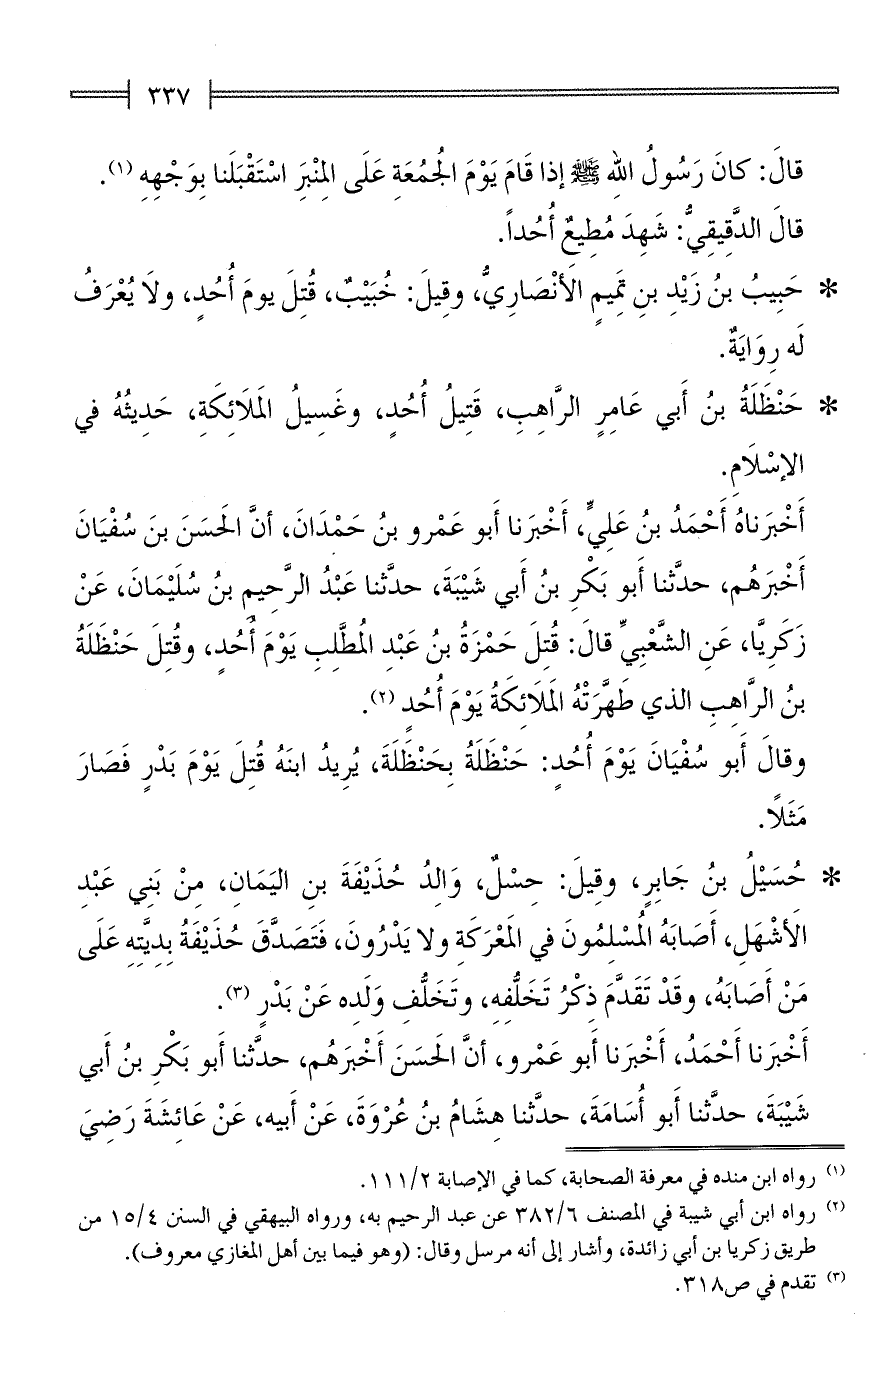 ٣٣٧
قالَ: كانَ رَسُولُ اللهِ ﷺ إذا قَامَ يَوْمَ الجُمُعَةِ عَلَى المِنْبَرَ اسْتَقْبَلَنا بِوَجْهِهِ (١).
قالَ الدَّقِيقِيُّ: شَهِدَ مُطِيعٌ أُحُداً.
* حَبِيبُ بنُ زَيْدِ بنِ تَمِيمٍ الأَنْصَارِيُّ، وقِيلَ: خُبَيْبٌ، قُتِلَ يومَ أُحُدٍ، ولَا يُعْرَفُ
لَه رِوَايَةٌ.
* حَنْظَلَةُ بنُ أَبي عَامِرٍ الرَّاهِبِ، قَتِيلُ أُحُدٍ، وغَسِيلُ المَلَائِكَةِ، حَدِيثُهُ في
الإسْلَامِ.
أَخْبَرَناهُ أَحْمَدُ بنُ عَلِيٍّ، أَخْبَرَنا أَبو عَمْرو بنُ حَمْدَانَ، أنَّ الحَسَنَ بنَ سُفْيَانَ
أَخْبَرَهُم، حدَّثنا أبو بَكْرِ بنُ أَبي شَيْبَةَ، حدَّثنا عَبْدُ الرَّحِيمِ بنُ سُلَيْمَانَ، عَنْ
زَكَرِيَّا، عَنِ الشَّعْبِيِّ قالَ: قُتِلَ حَمْزَةُ بنُ عَبْدِ المُطَّلِبِ يَوْمَ أُحُدٍ، وقُتِلَ حَنْظَلَةُ
بنُ الرَّاهِبِ الذي طَهَّرَتْهُ المَلَائِكَةُ يَوْمَ أُحُدٍ (٢).
وقالَ أَبو سُفْيَانَ يَوْمَ أُحُدٍ: حَنْظَلَةُ بِحَنْظَلَةَ، يُرِيدُ ابنَهُ قُتِلَ يَوْمَ بَدْرٍ فَصَارَ
مَثَلَاً.
* حُسَيْلُ بنُ جَابِرٍ، وقِيلَ: حِسْلٌ، وَالِدُ حُذَيْفَةَ بنِ اليَمَانِ، مِنْ بَنِي عَبْدِ
الأَشْهَلِ، أَصَابَهُ المُسْلِمُونَ في المَعْرَكَةِ ولا يَدْرُونَ، فَتَصَدَّقَ حُذَيْفَةُ بِدِيَّتِهِ عَلَى
مَنْ أَصَابَهُ، وقَدْ تَقَدَّمَ ذِكْرُ تَخَلُّفِهِ، وتَخَلُّف وَلَدِه عَنْ بَدْرٍ (٣).
أَخْبَرَنا أَحْمَدُ، أَخْبَرَنا أبو عَمْرو، أنَّ الحَسَنَ أَخْبَرَهُم، حدَّثنا أبو بَكْرِ بنُ أَبي
شَيْبَةَ، حدَّثنا أبو أُسَامَةَ، حدَّثنا هِشَامُ بنُ عُرْوَةَ، عَنْ أَبيه، عَنْ عَائِشَةَ رَضِيَ
(١) رواه ابن منده في معرفة الصحابة، كما في الإصابة ١١١/٢.
(٢) رواه ابن أبي شيبة في المصنف ٣٨٢/٦ عن عبد الرحيم به، ورواه البيهقي في السنن ١٥/٤ من
طريق زكريا بن أبي زائدة، وأشار إلى أنه مرسل وقال: (وهو فيما بين أهل المغازي معروف).
(٣) تقدم في ص٣١٨.